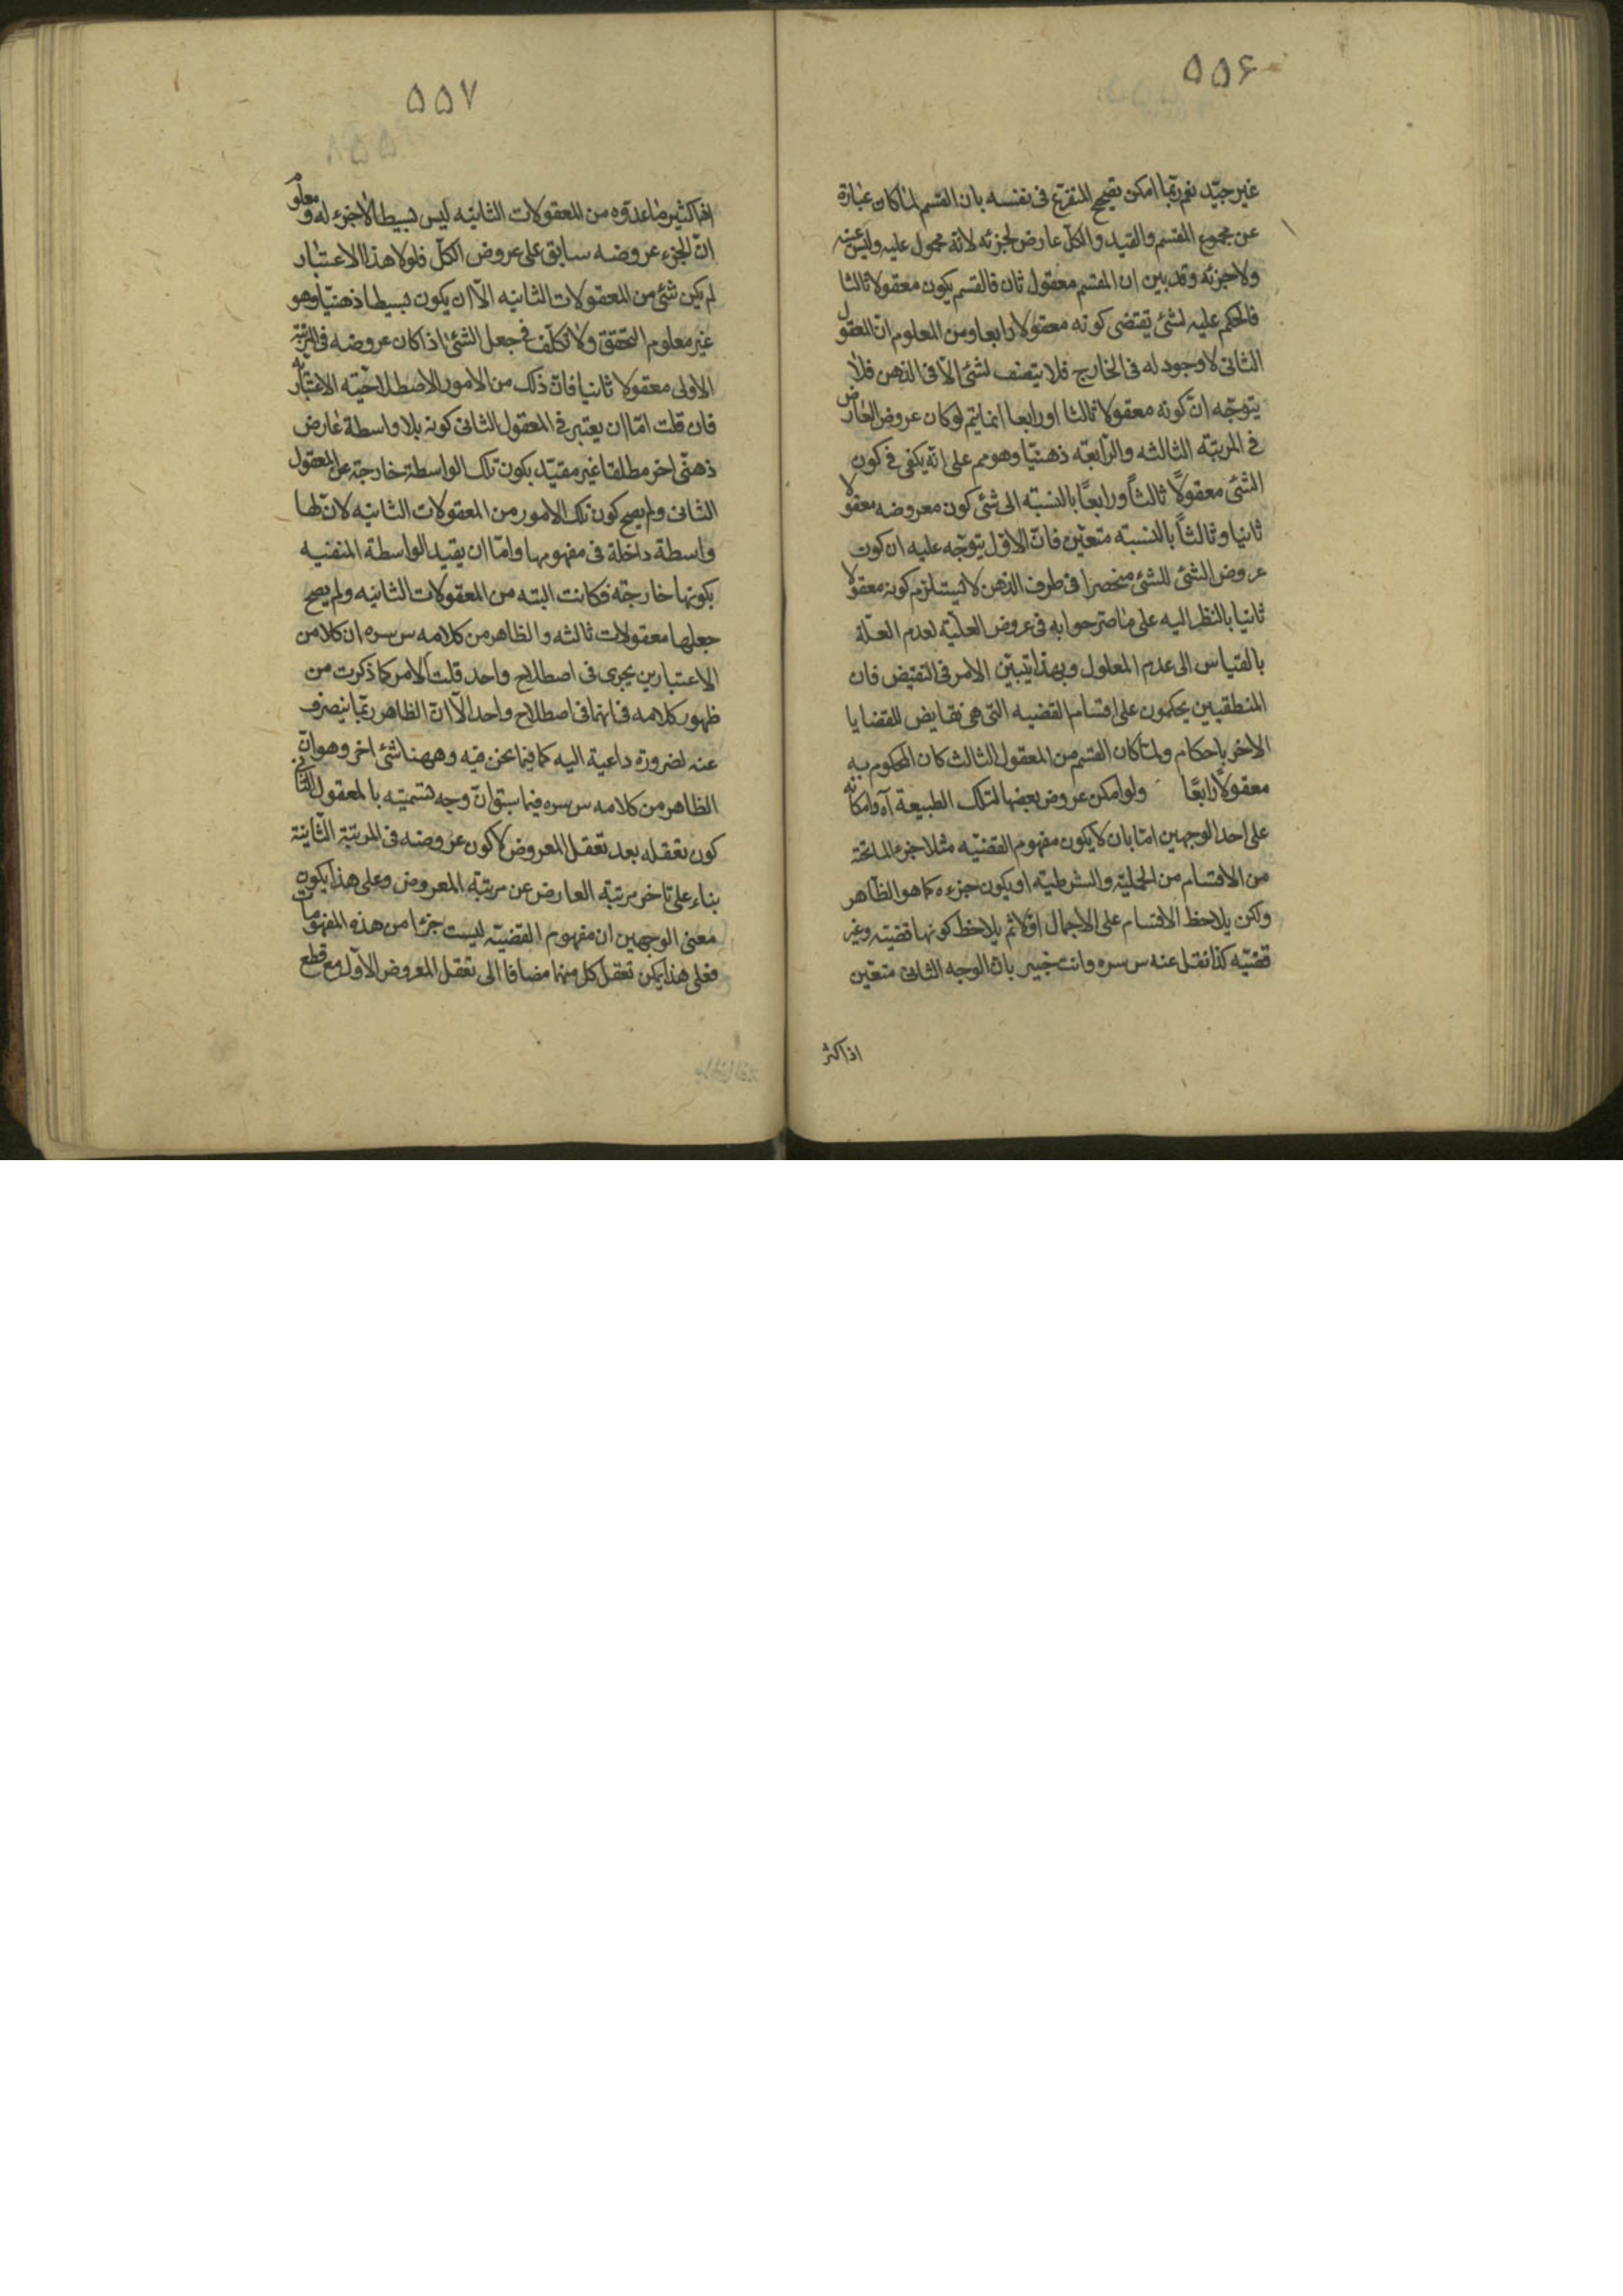 ۵۵۶
غير جيّد نعم ربّما امكن تصحيح التفريع فى نفسه بان القسم لمّا كان عبارة
عن مجموع المقسم والقيد والكلّ عارض لجزئه لانّه محمول عليه وليس عينه
ولا جزئه وقد بين ان المقسم معقول ثان فالقسم يكون معقولا ثالثا
فالحكم عليه لشئ يقتضى كونه معقولا رابعا ومن المعلوم انّ المعقول
الثانى لا وجود له فى الخارج فلا يتصف لشئ الّا فى الذهن فلا
يتوجّه انّ كونه معقولا ثالثا او رابعا انما يتم لو كان عروض العارض
فى المرتبة الثالثه والرّابعة ذهنيّا وهو مم على انّه يكفى فى كون
الشئ معقولًا ثالثاً ورابعًا بالنسبة الى شئ كون معروضه معقولا
ثانيا وثالثاً بالنسبة متعيّن فانّ الاوّل يتوجّه عليه ان كون
عروض الشئ للشئ منحصرا فى ظرف الذهن لا يستلزم كونه معقولا
ثانيا بالنظر اليه على ما صرّحوا به فى عروض العلّية لعدم العلّة
بالقياس الى عدم المعلول وبهذا يتبيّن الامر فى النقيض فان
المنطقيين يحكمون على اقسام القضيه التى هى نقايض للقضايا
الاخر باحكام ولمّا كان القسم من المعقول الثالث كان المحكوم به
معقولًا رابعًا ولو امكن عروض بعضها لتلك الطبيعة آه وامكانه
على احد الوجهين امّا بان لا يكون مفهوم القضيّه مثلا جزء لما تحته
من الاقسام من الحمليّة والشرطيّه او يكون جزءه كما هو الظاهر
ولكن يلاحظ الاقسام على الاجمال اوّلا ثم يلاحظ كونها قضيّه وغير
قضيّه كذا نقل عنه س سره وانت خبير بانّ الوجه الثانى متعيّن
اذ اكثر
۵۵۷
اذ اكثير ما عدّوه من المعقولات الثانيه ليس بسيطا لا جزء له ومعلوم
انّ الجزء عروضه سابق على عروض الكلّ فلولا هذا الاعتبار
لم يكن شئ من المعقولات الثانيه الّا ان يكون بسيطا ذهنيّا وهو
غير معلوم التحقق ولا تكلّف فى جعل الشئ اذا كان عروضه فى المرتبة
الاولى معقولا ثانيا فانّ ذلك من الامور الاصطلاحيّة الاعتباريّة
فان قلت امّا ان يعتبر فى المعقول الثانى كونه بلا واسطة عارض
ذهنّى اخر مطلقا غير مقيّد بكون تلك الواسطة خارجة عن المعقول
الثانى ولم يصح كون تلك الامور من المعقولات الثانيه لانّ لها
واسطة داخلة فى مفهومها وامّا ان يقيد الواسطة المنفيه
بكونها خارجة فكانت البته من المعقولات الثانيه ولم يصح
جعلها معقولات ثالثه والظاهر من كلامه س سره ان كلا من
الاعتبارين يجرى فى اصطلاح واحد قلت الامر كما ذكرت من
ظهور كلامه فى انهما فى اصطلاح واحد الّا انّ الظاهر ربّما ينصرف
عنه لضرورة داعية اليه كما فيما نحن فيه وههنا شئ اخر وهو انّ
الظاهر من كلامه س سره فيما سبق انّ وجه تسميته بالمعقول الثانى
كون تعقله بعد تعقل المعروض لا كون عروضه فى المرتبة الثّانية
بناء على تاخر مرتبة العارض عن مرتبة المعروض وعلى هذا يكون
معنى الوجهين ان مفهوم القضيّه ليست جزءا من هذه المفهومات
فعلى هذا يمكن تعقل كل منهما مضافا الى تعقل المعروض الاوّل مع قطع